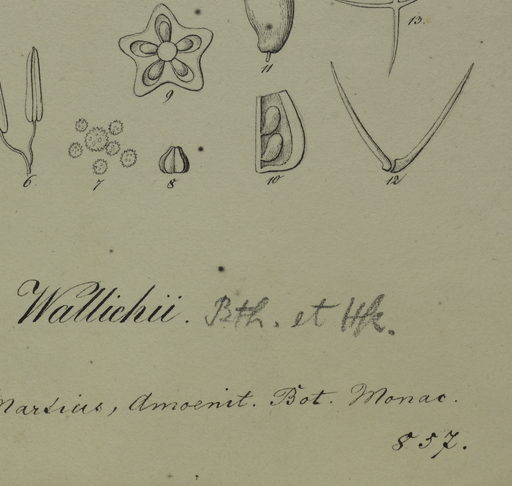 13.
11
9
6
7
8
10
12
Wallichii. Bth. et Hk.
Martius, Amoenit. Bot. Monac.
857.